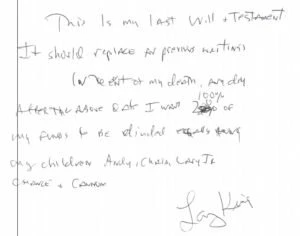 This is my Last Will & Testament
It should replace all previous writings
In the event of my death, any day
after the above date I want
100%
of
my funds to be divided
my children Andy, Chaia, Larry Jr
Chance & Cannon
Larry King